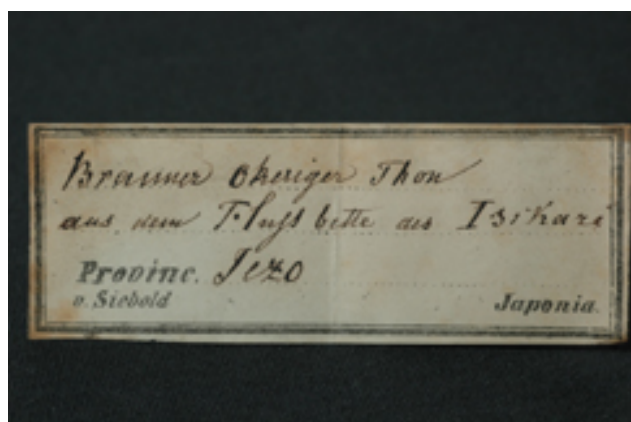 Brauner Okeriger Thon
aus dem Flussbette des Isikari
Provinc. Jezo
v. Siebold Japonia.